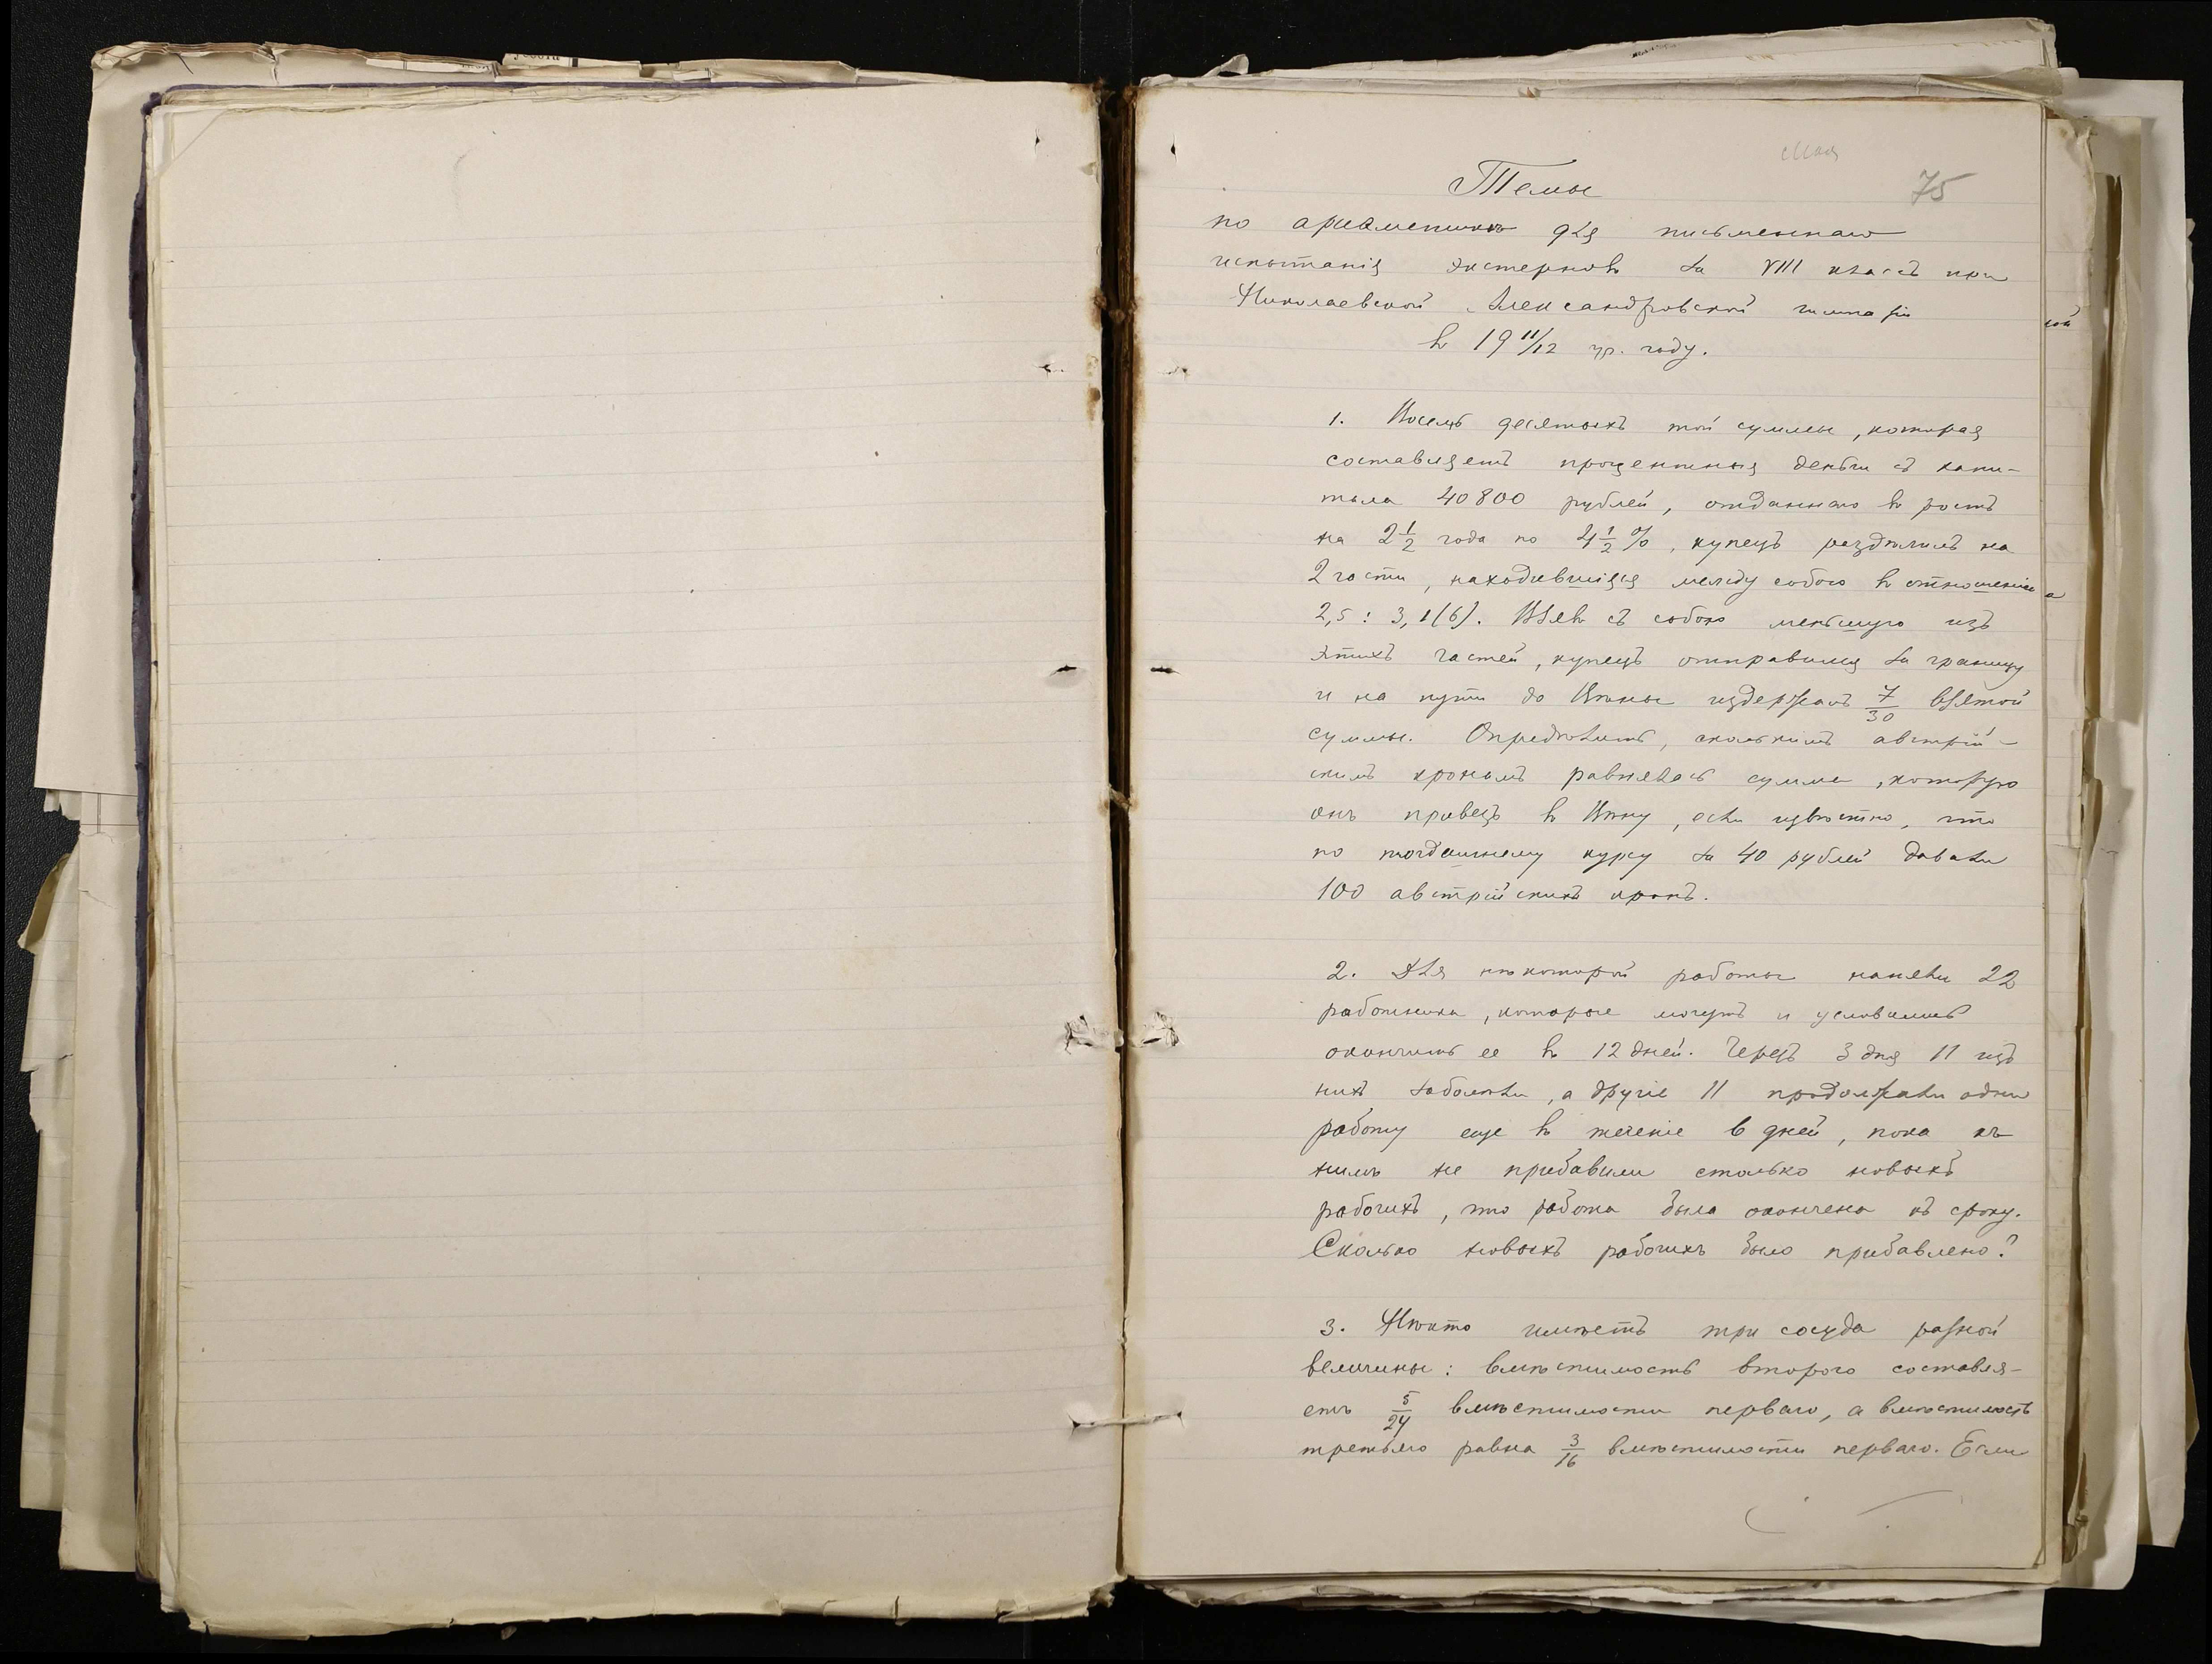 75
Темы
по ариѳметикѣ для письменнаго
испытанія экстерновъ за VIII классъ при
Николаевской Александровской гимназіи
въ 19 11/12 уч. году.
1. Восемь десятыхъ той суммы, которая
составляетъ процентныя деньги съ капи-
тала 40800 рублей, отданнаго въ ростъ
на 2 1/2 года по 4 1/2 %, купецъ раздѣлилъ на
2 части, находившіяся между собою въ отношеніи
2,5 : 3,1(6). Взявъ съ собою меньшую изъ
этихъ частей, купецъ отправился за границу
и на пути до Вѣны издержалъ 7/30 взятой
суммы. Опредѣлить, сколькимъ австрій-
скимъ кронамъ равнялась сумма, которую
онъ привезъ въ Вѣну, если извѣстно, что
по тогдашнему курсу за 40 рублей давали
100 австрійскихъ кронъ.
2. Для нѣкоторой работы наняли 22
работника, которые могутъ и условились
окончить ее въ 12 дней. Черезъ 3 дня 11 изъ
нихъ заболѣли, а другіе 11 продолжали одни
работу еще въ теченіе 6 дней, пока къ
нимъ не прибавили столько новыхъ
рабочихъ, что работа была окончена къ сроку.
Сколько новыхъ рабочихъ было прибавлено?
3. Нѣкто имѣетъ три сосуда разной
величины: вмѣстимость второго составля-
етъ 5/24 вмѣстимости перваго, а вмѣстимость
третьяго равна 3/16 вмѣстимости перваго. Если